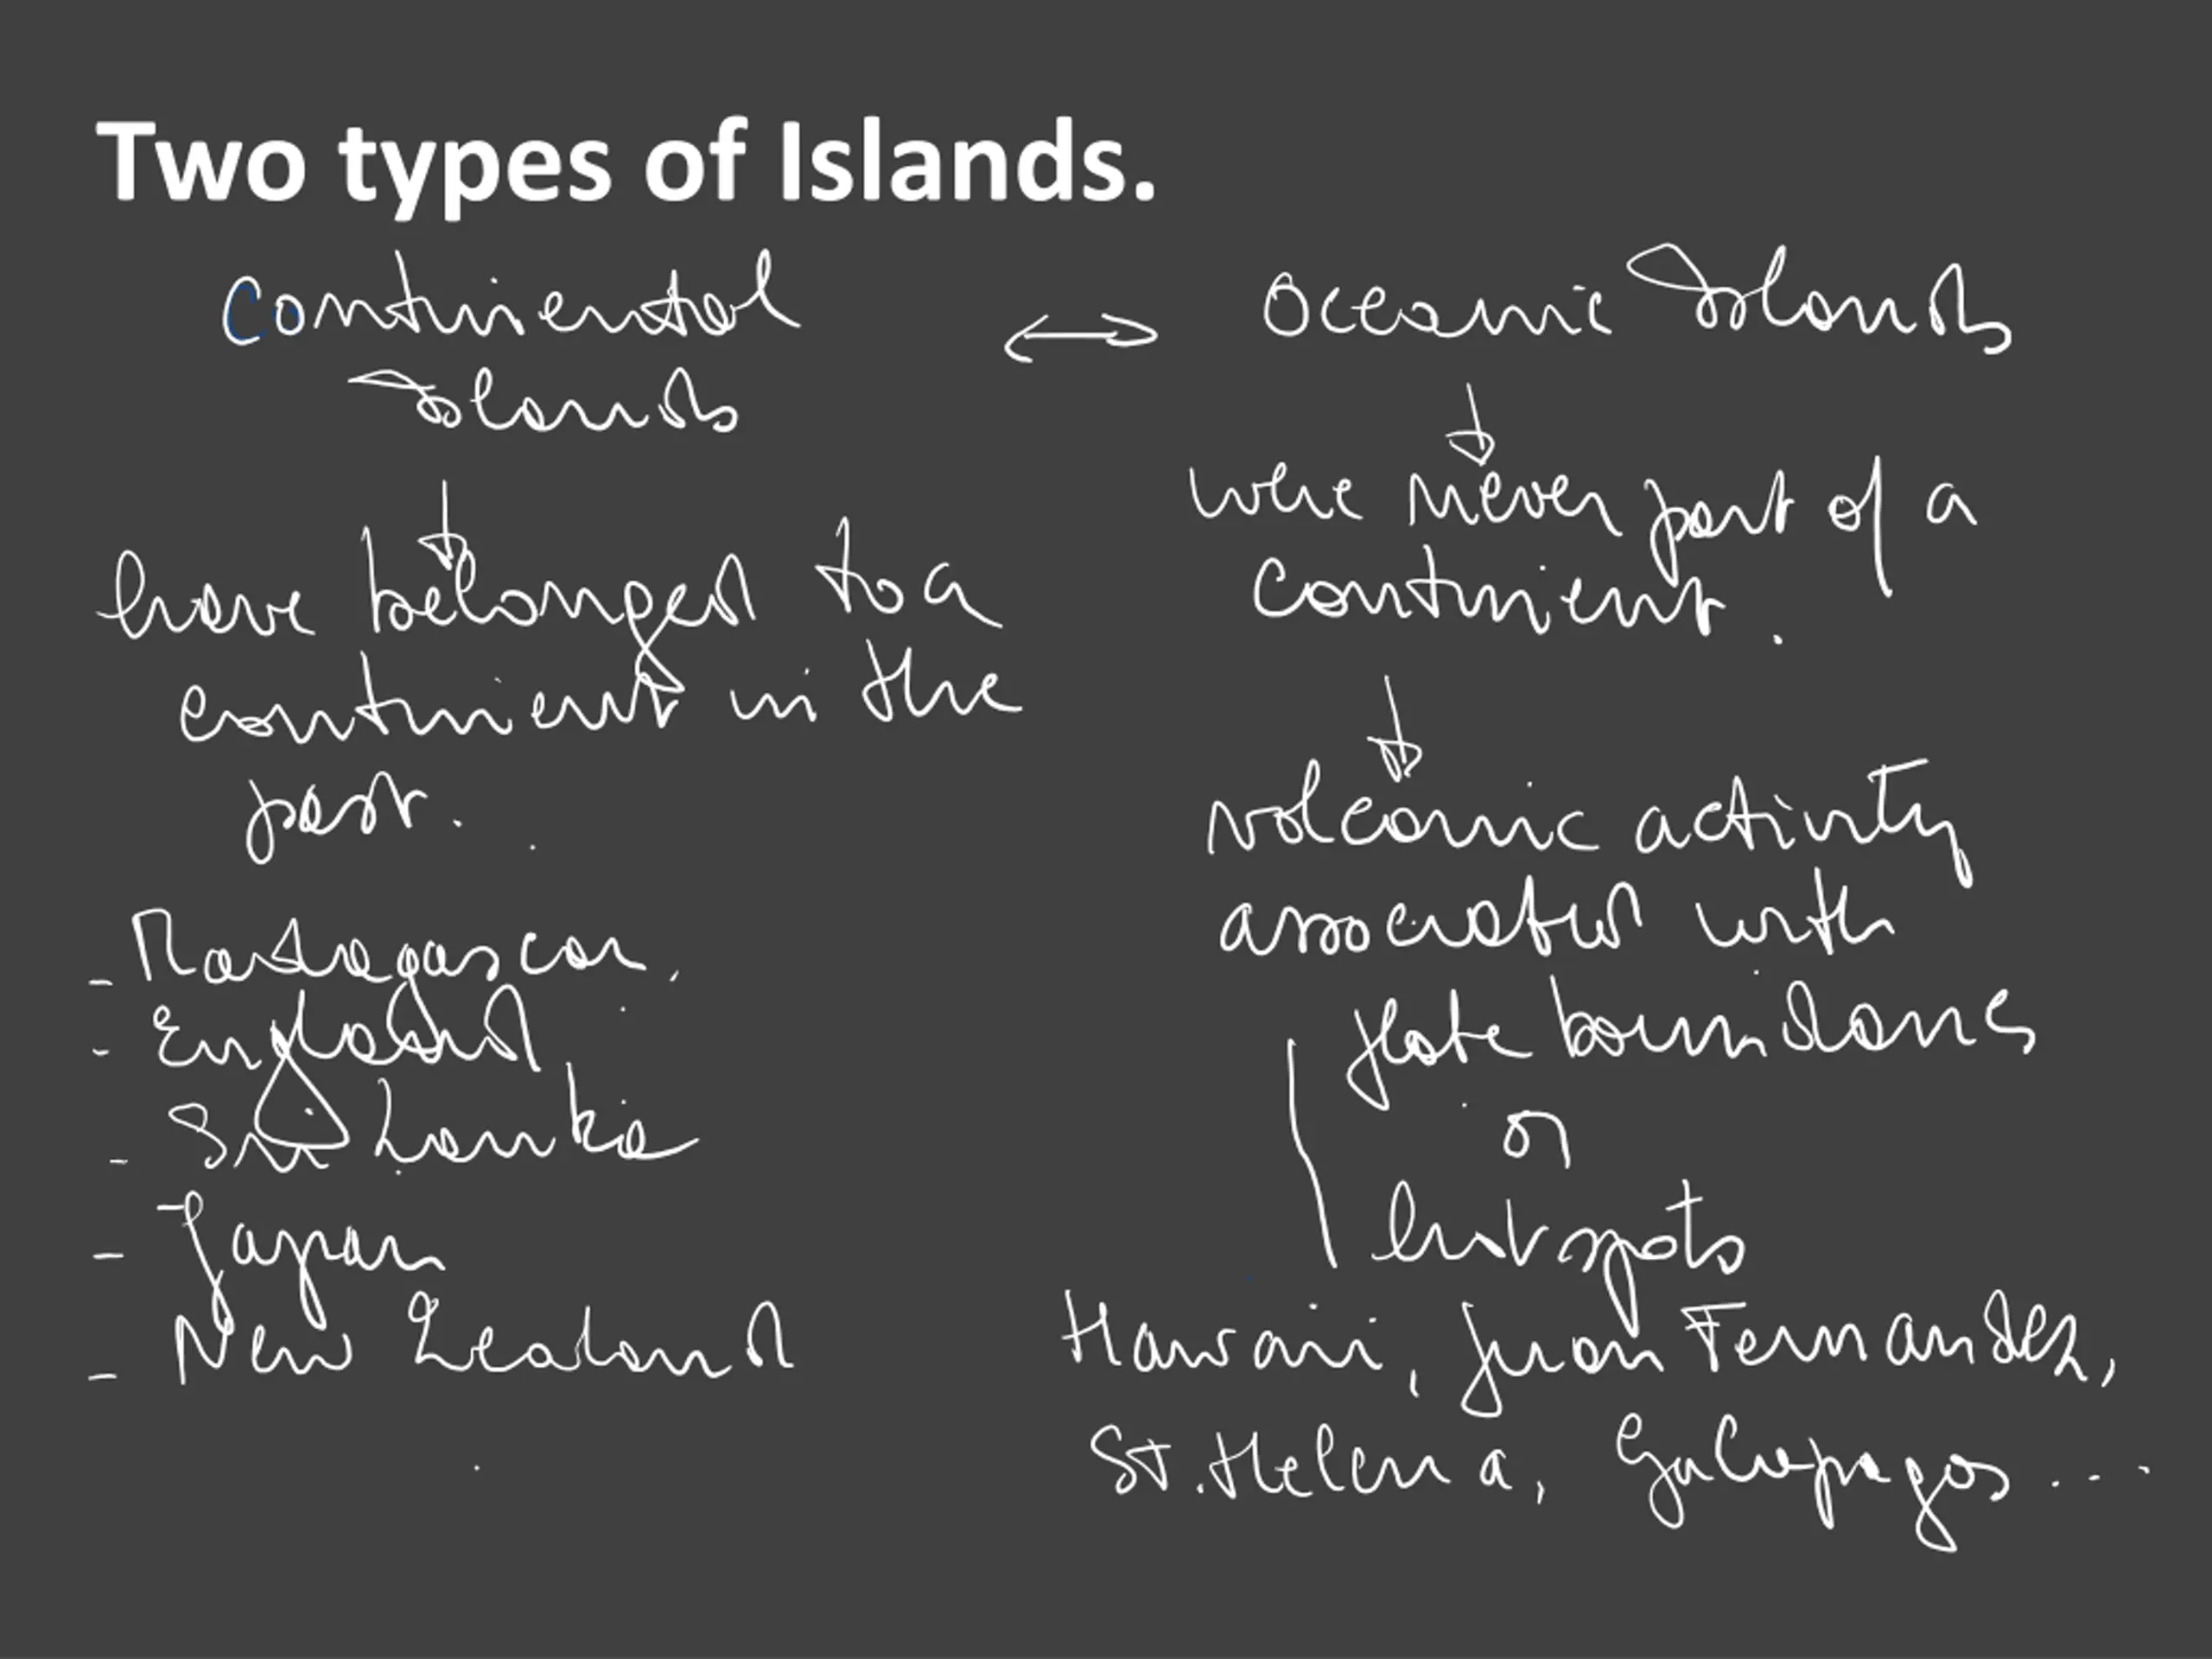 Two types of Islands.
Continental
Islands
have belonged to a
continent in the
past.
- Madagascar,
- England
- Sri Lanka
- Japan
- New Zealand
Oceanic Islands
were never part of a
continent.
volcanic activity
associated with
plate boundaries
or
hot spots
Hawaii, Juan Fernandez,
St. Helena, Galapagos...